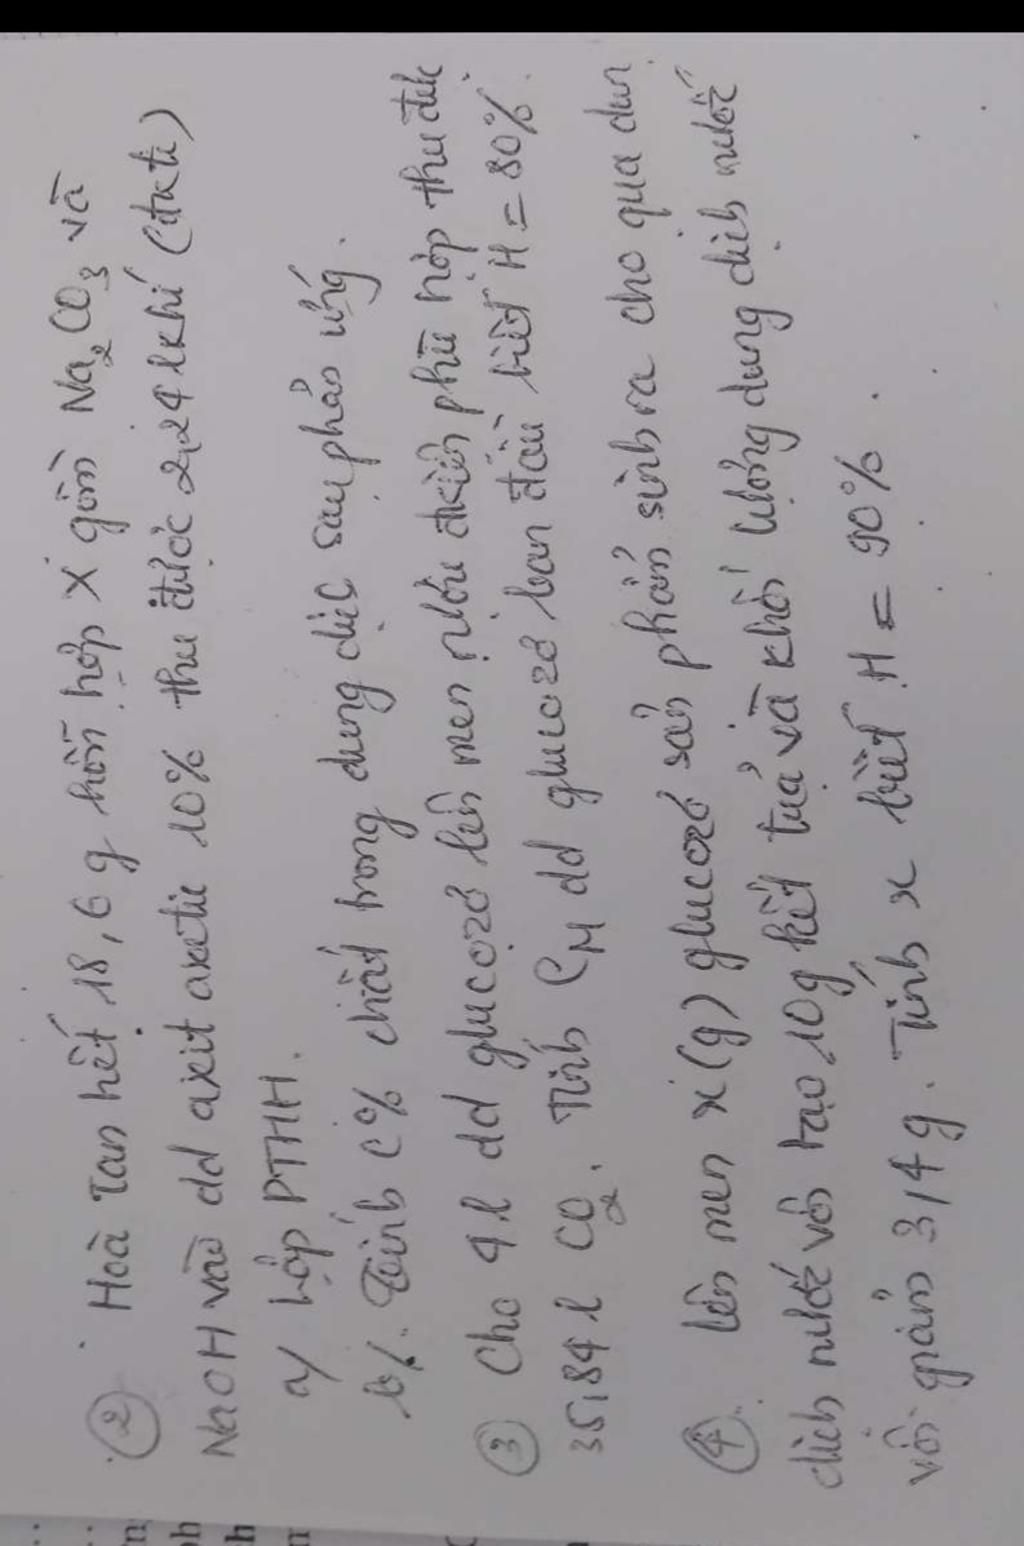 ② Hoà tan hết 18,6 g hỗn hợp X gồm Na2CO3 và
NaOH vào dd axit axetic 10% thu được 2,24 l khí (đktc)
a/ Lập PTHH.
b/. Tính C% chất trong dung dịc sau phản ứng.
③ Cho 4 l dd glucozơ lên men rượu đkiện phù hợp thu đưk
35,84 l CO2. Tính CM dd glucozơ ban đầu biết H = 80%.
④. Lên men x(g) glucozơ sản phẩm sinh ra cho qua dun
dịch nước vôi tạo 10g kết tuả và khối lượng dung dịch nước
vôi giảm 3,4g. Tính x biết H = 90%.